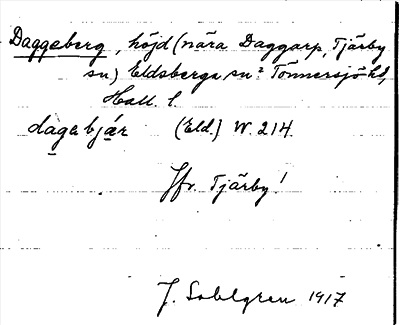 Daggeberg, höjd (nära Daggarp, Tjärby
sn) Eldsberga sn² Tönnersjö hd,
Hall. l.
dagabjär (Eld.) W. 214.
Jfr. Tjärby!
J. Sahlgren 1917